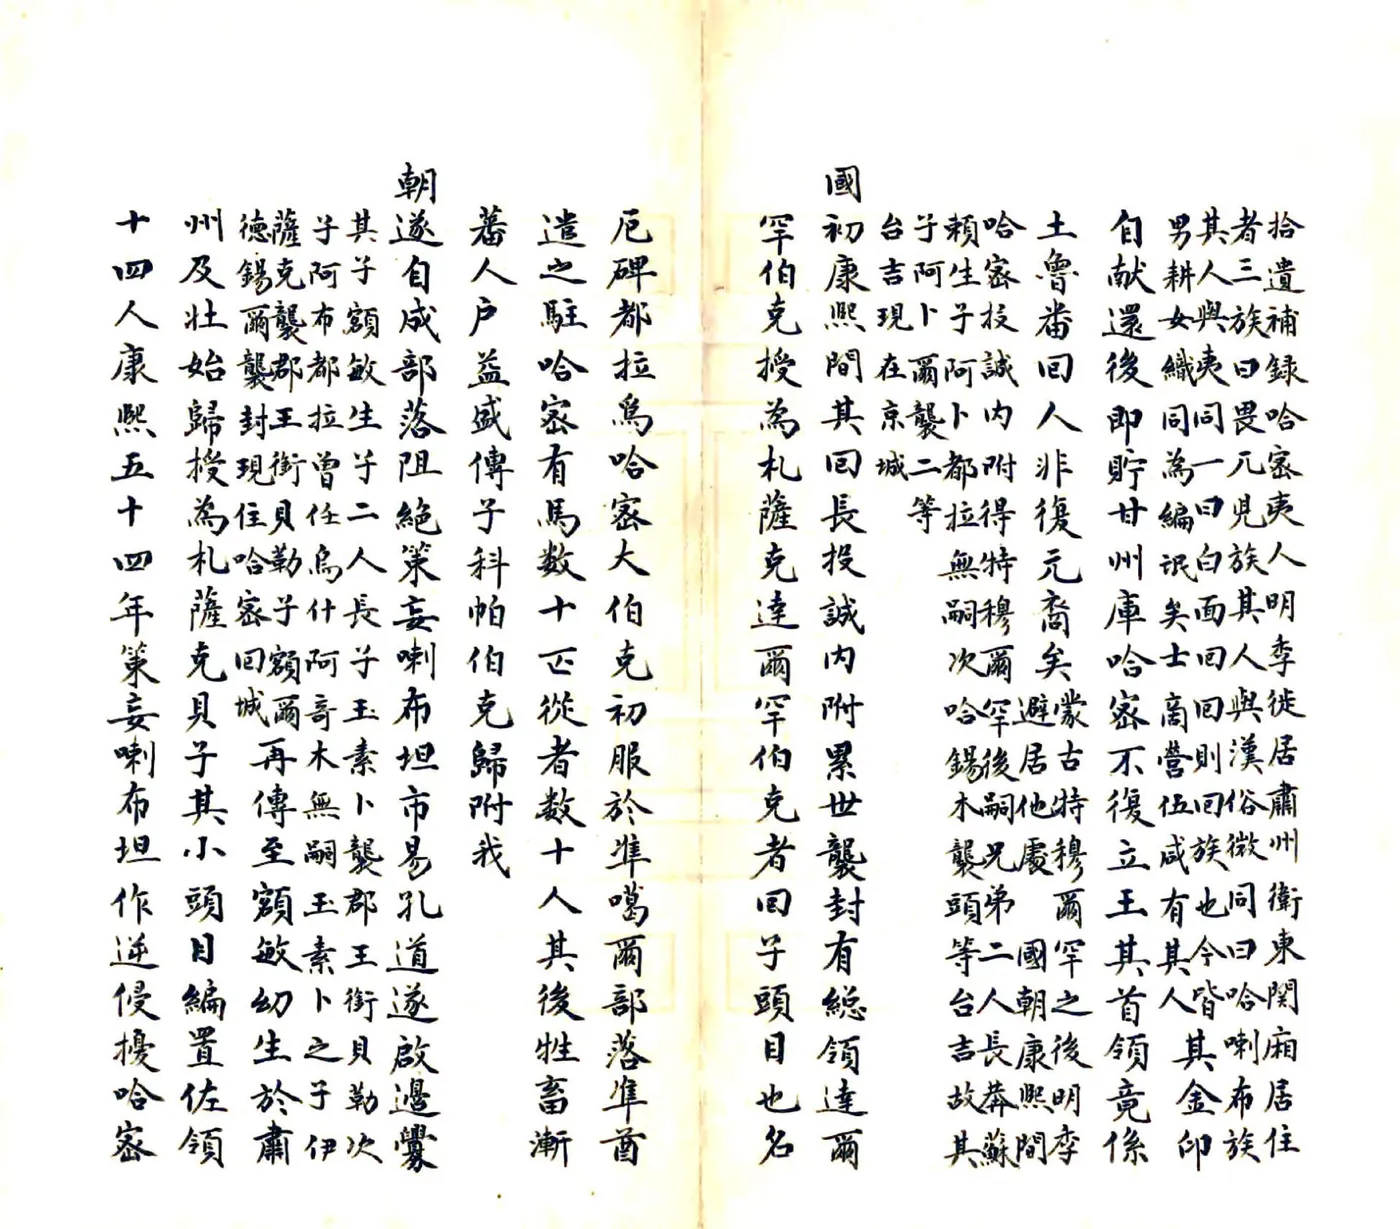 拾遺補録哈宻夷人明季徙居肅州衛東関廂居住
者三族曰畏兀児族其人與漢俗微同曰哈喇布族
其人與夷同一曰白面回回則回族也今皆
男耕女織同為編氓矣士商營伍咸有其人
其金印
自献還後即貯甘州庫哈宻不復立王其首領竟係
土魯番回人非復元裔矣
蒙古特穆爾罕之後明季
避居他處國朝康熙間
哈宻投誠内附得特穆爾罕後嗣兄弟二人長莽蘇
頼生子阿卜都拉無嗣次哈錫木襲頭等台吉故其
子阿卜爾襲二等
台吉現在京城
國初康熙間其回長投誠内附累世襲封有總領達爾
罕伯克授為札薩克達爾罕伯克者回子頭目也名
厄碑都拉爲哈宻大伯克初服於準噶爾部落準酋
遣之駐哈宻有馬数十匹從者数十人其後牲畜漸
蕃人戸益盛傳子科帕伯克歸附我
朝遂自成部落阻絶策妄喇布坦市易孔道遂啟邉釁
其子額敏生子二人長子玉素卜襲郡王銜貝勒次
子阿布都拉曽任烏什阿奇木無嗣玉素卜之子伊
薩克襲郡王銜貝勒子額爾
德錫爾襲封現住哈宻回城
再傳至額敏幼生於肅
州及壮始歸授為札薩克貝子其小頭目編置佐領
十四人康熙五十四年策妄喇布坦作逆侵擾哈宻